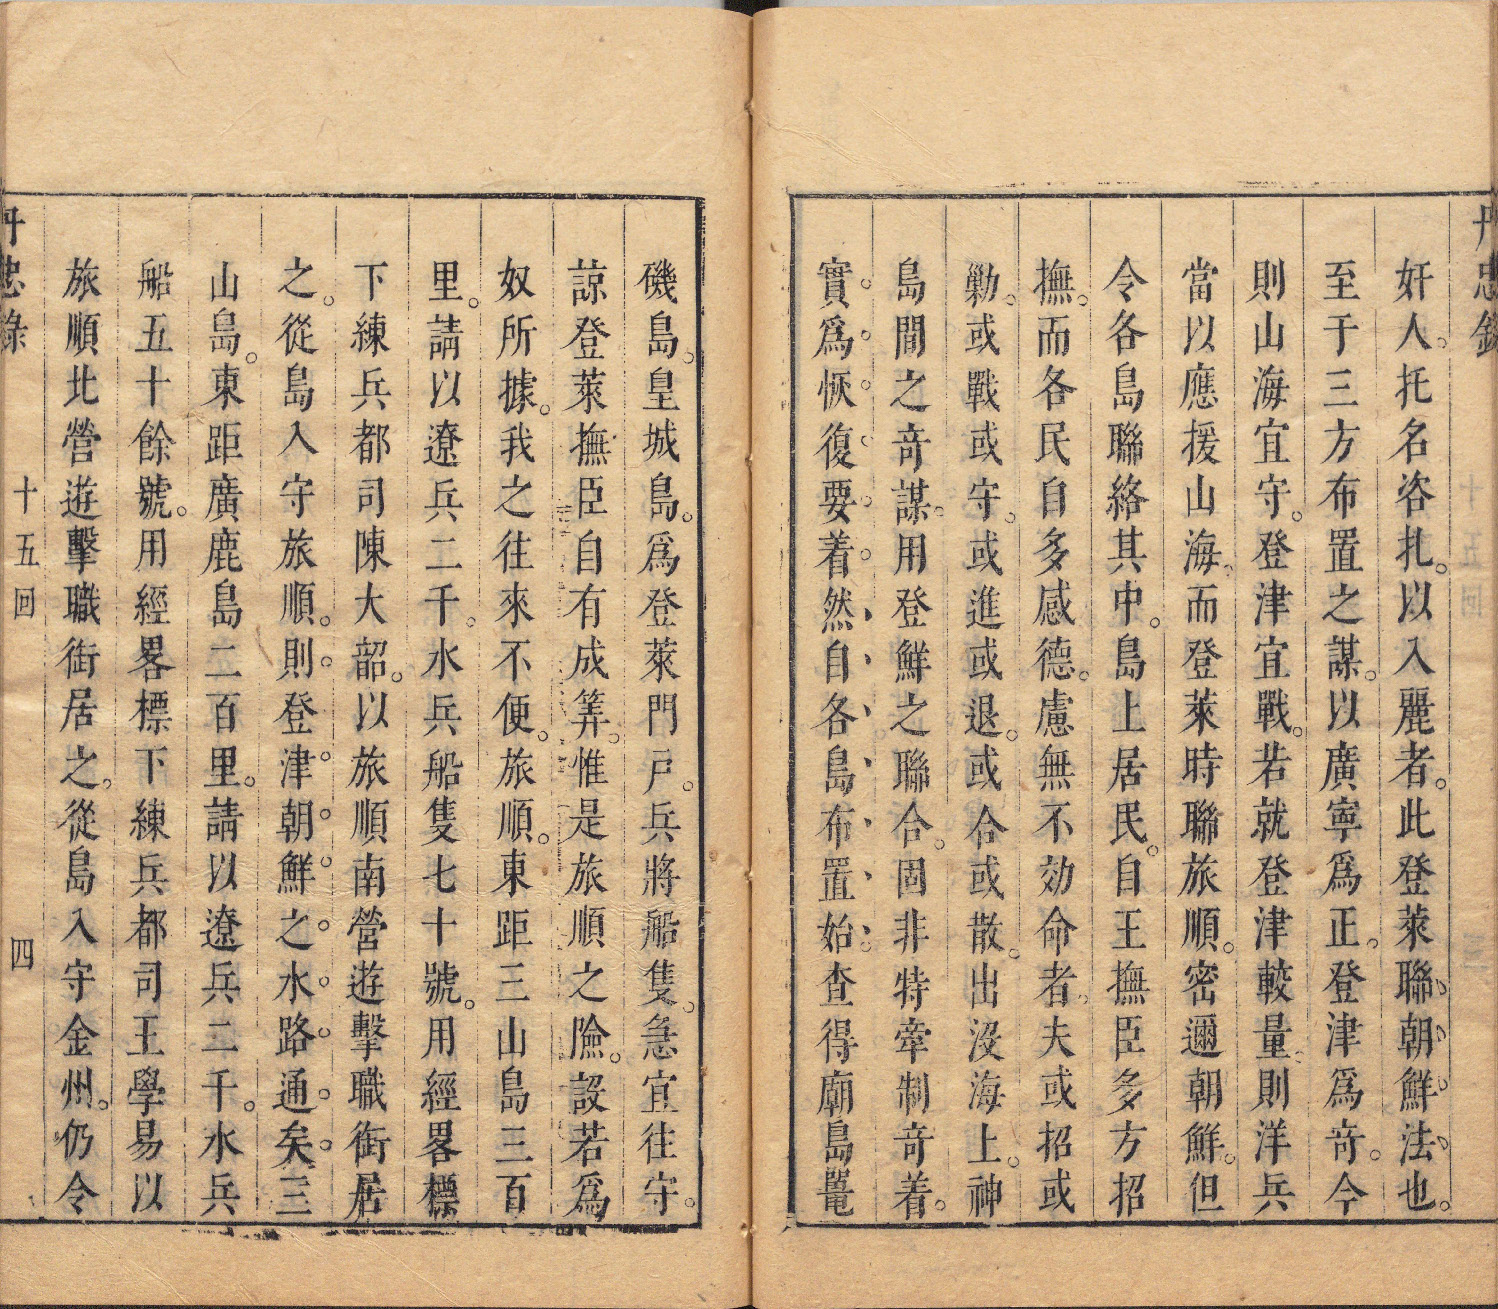 丹忠錄
奸人托名咨扎。以入麗者。此登萊聯朝鮮法也。
至于三方布置之謀。以廣寧爲正。登津爲奇。今
則山海宜守。登津宜戰。若就登津較量。則洋兵
當以應援山海。而登萊時聯旅順。密邇朝鮮。但
令各島聯絡其中。島上居民。自王撫臣多方招
撫。而各民自多感德。慮無不効命者。夫或招或
勦。或戰或守。或進或退。或合或散。出沒海上。神
島間之奇謀。用登鮮之聯合。固非特牽制奇着。
實。爲。恢。復。要。着。然自各島布置始。查得廟島鼉
磯島。皇城島。爲登萊門戸。兵將船隻。急宜往守。
諒登萊撫臣自有成筭。惟是旅順之險。設若爲
奴所據。我之往來不便。旅順。東距三山島三百
里。請以遼兵二千。水兵船隻七十號。用經畧標
下練兵都司陳大韶。以旅順南營遊擊職銜居
之。從島入守旅順。則。登。津。朝。鮮。之。水。路。通。矣。三
山島。東距廣鹿島二百里。請以遼兵二千。水兵
船五十餘號。用經畧標下練兵都司王學易以
旅順北營遊擊職銜居之。從島入守金州。仍令
丹忠錄
十五回
四